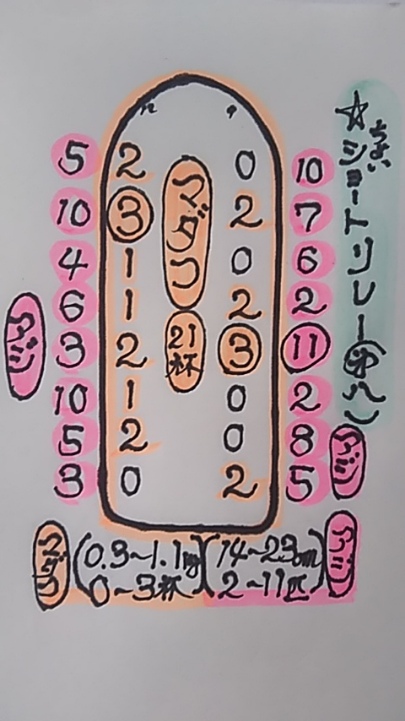 ☆ちょいショートリレー(中八)
5 2 0 10
10 3 マダコ 2 7
4 1 0 6
6 1 2 2
アジ 3 2 21杯 3 11
10 1 0 2
5 2 0 8 アジ
3 0 2 5
マダコ (0.3~1.1kg) (14~23cm) アジ
0~3杯 2~11匹